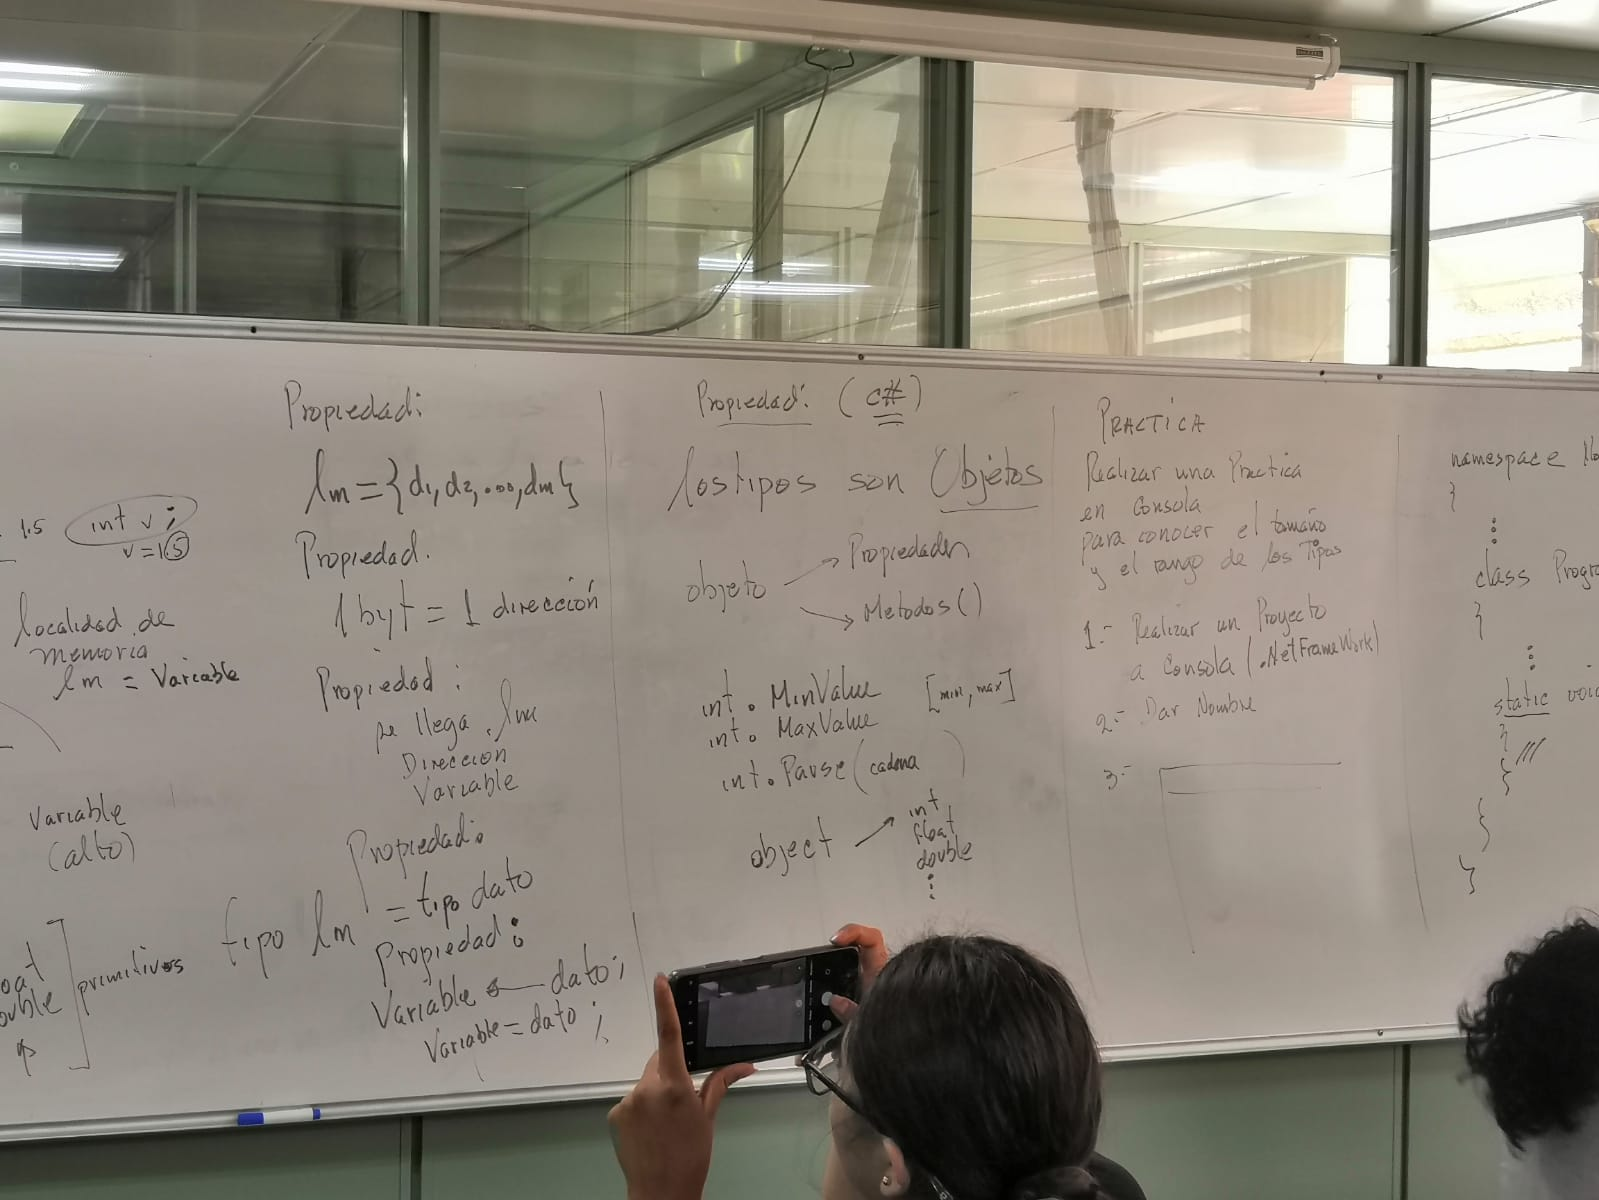 1.5
int v;
v=1.5
localidad de
memoria
lm = Variable
Variable
(alto)
primitivos
Propiedad:
lm={d1,d2,...,dm}
Propiedad.
1 byt = 1 dirección
Propiedad:
se llega
Dirección
Variable
Propiedad:
tipo lm = tipo dato
Propiedad:
Variable ← dato;
Variable = dato;
Propiedad: (c#)
los tipos son Objetos
objeto → Propiedades
→ Metodos()
int.MinValue [min,max]
int.MaxValue
int.Parse(cadena )
object → int
float
double
PRACTICA
Realizar una Practica
en Consola
para conocer el tamaño
y el rango de los Tipos
1.- Realizar un Proyecto
a Consola (.NetFrameWork)
2.- Dar Nombre
3.-
namespace
{
class Progr
{
static voi
{
}
}
}